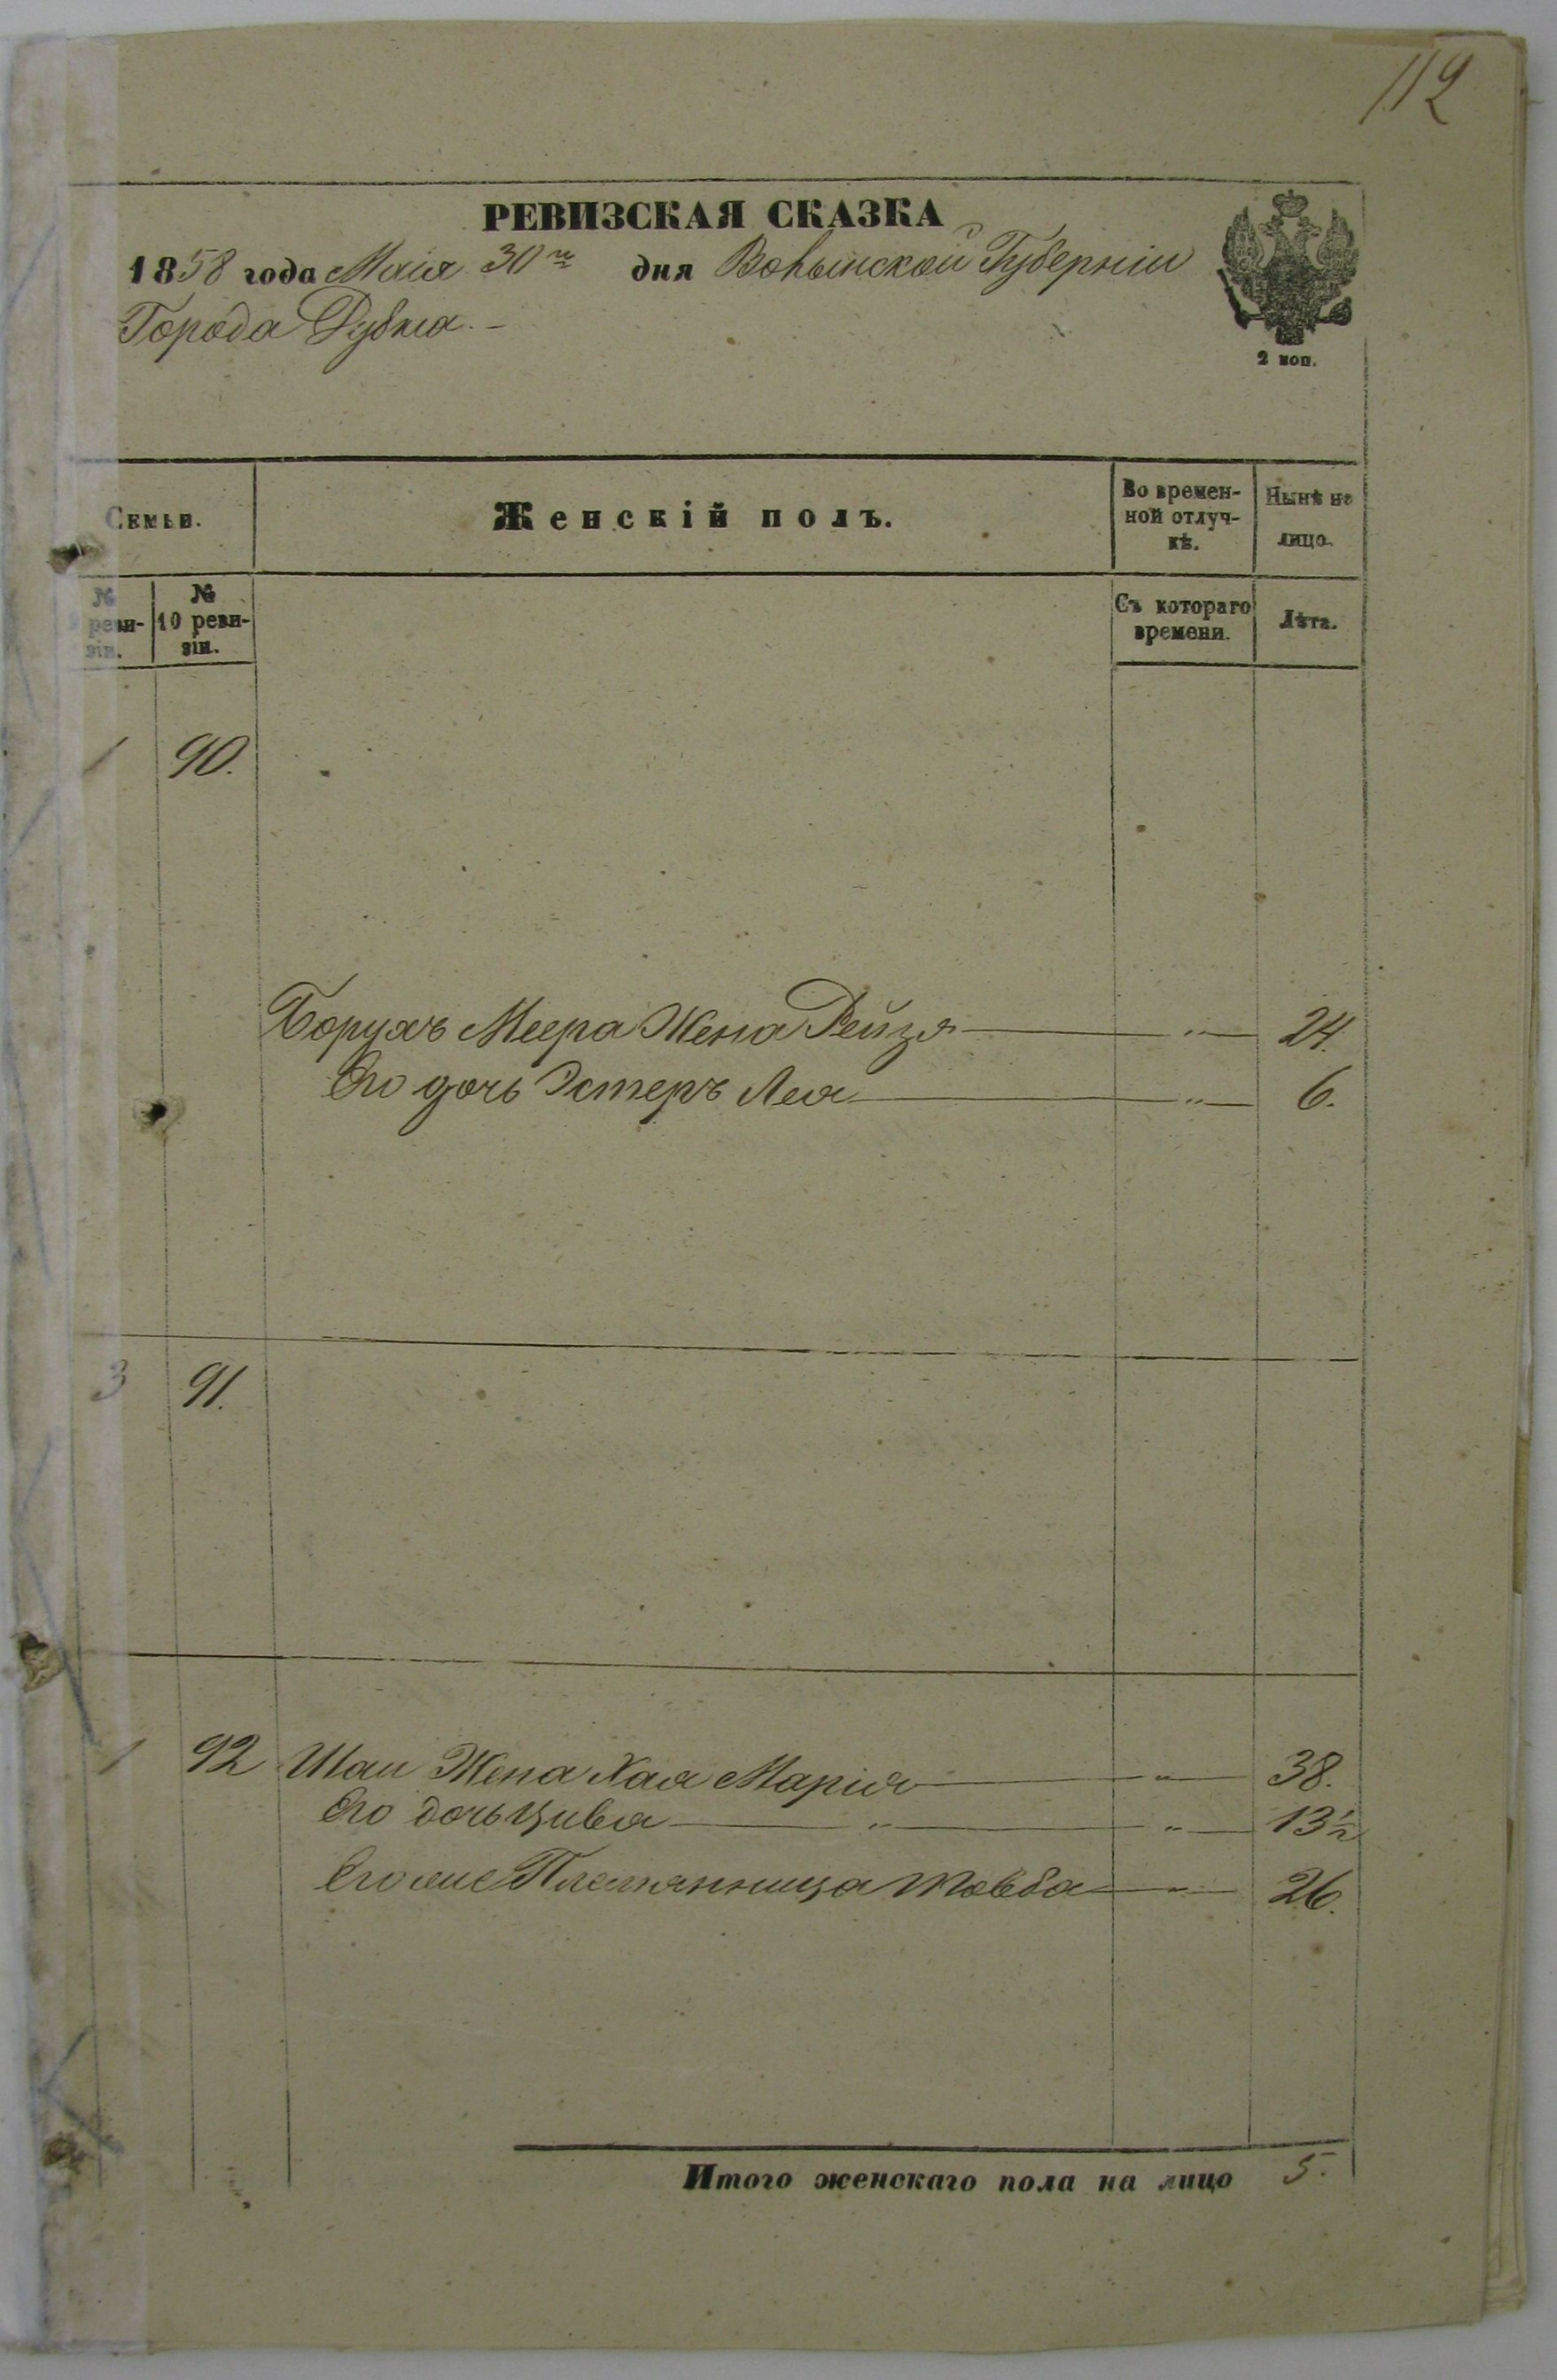 112
РЕВИЗСКАЯ СКАЗКА
1858 года Маія 30го дня Волынской Губерніи
Города Дубна.-
2 коп.
Семьи.
Женскій полъ.
Во времен-
ной отлуч-
кѣ.
Нынѣ на
лицо.
№
реви-
зіи.
№
10 реви-
зіи.
Съ котораго
времени.
Лѣта.
1 90.
Борухъ Меера Жена Рейзя — „ — 24.
Его дочь Эстеръ Лея — „ — 6.
3 91.
1 92 Шаи Жена Хая Марія — „ — 38.
Его дочь Цивья — „ — „ — 13½
Его же Племянница Товба — „ — 26.
Итого женскаго пола на лицо 5.